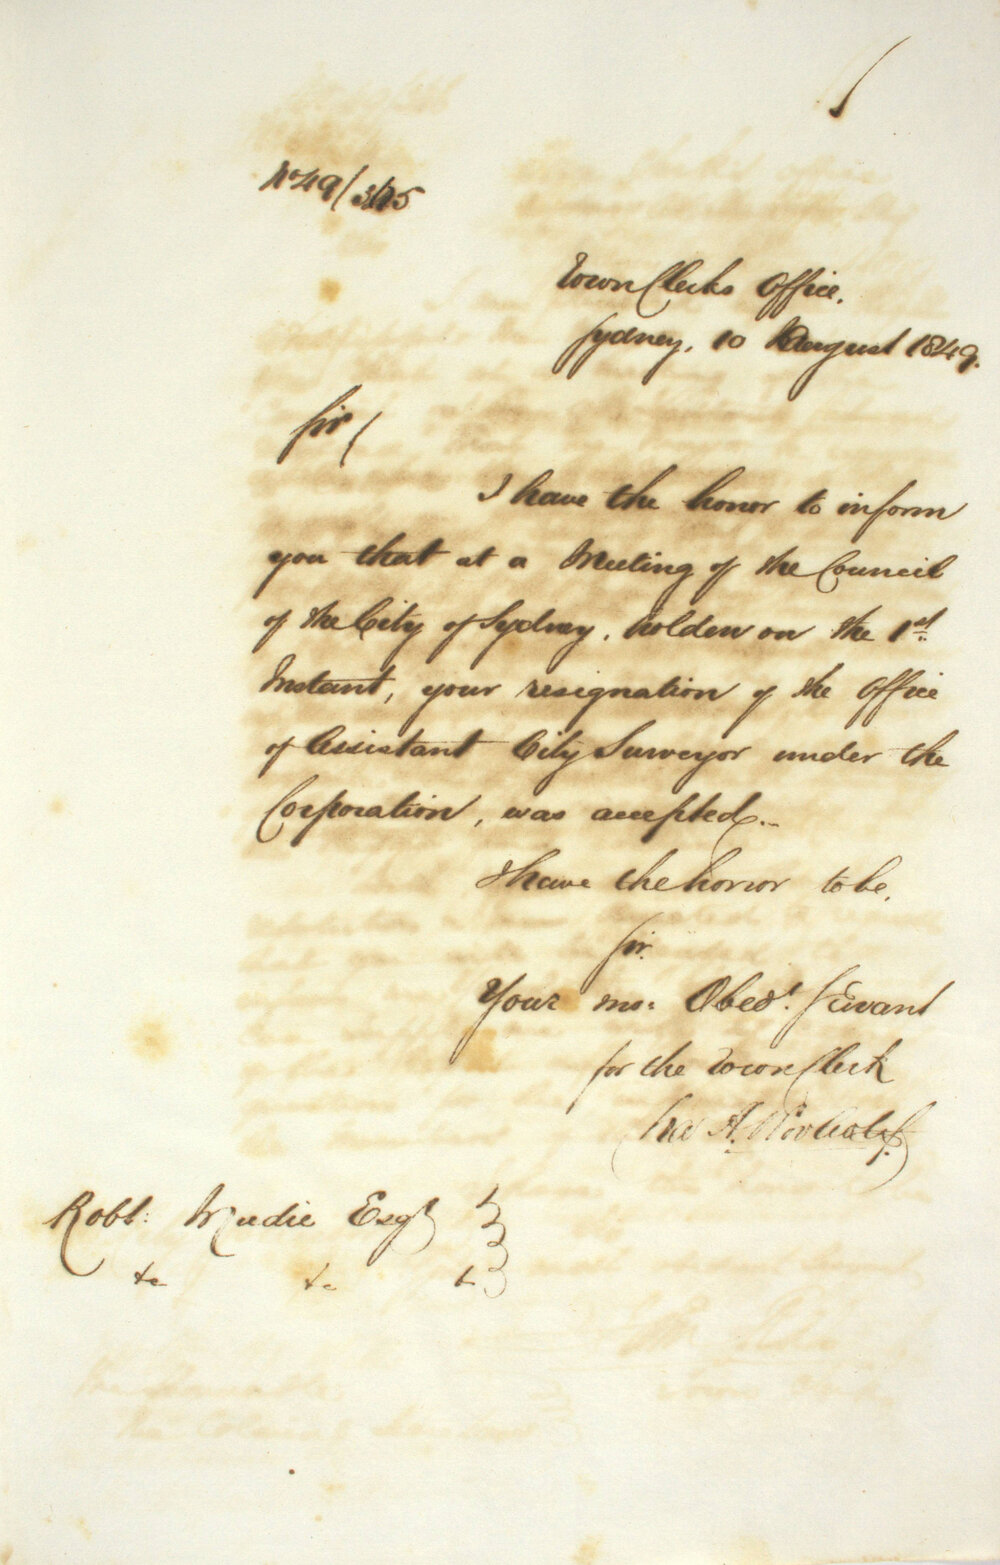 No 49/
Town Clerks Office.
Sydney, 10 August 1849.
Sir
I have the honor to inform
you that at a Meeting of the Council
of the City of Sydney, holden on the 1st
Instant, your resignation of the Office
of Assistant City Surveyor under the
Corporation, was accepted.
I have the honor to be,
Sir.
Your mo: Obedt. Servant
for the Town Clerk
Robt: Mudie Esqr
&c &c &